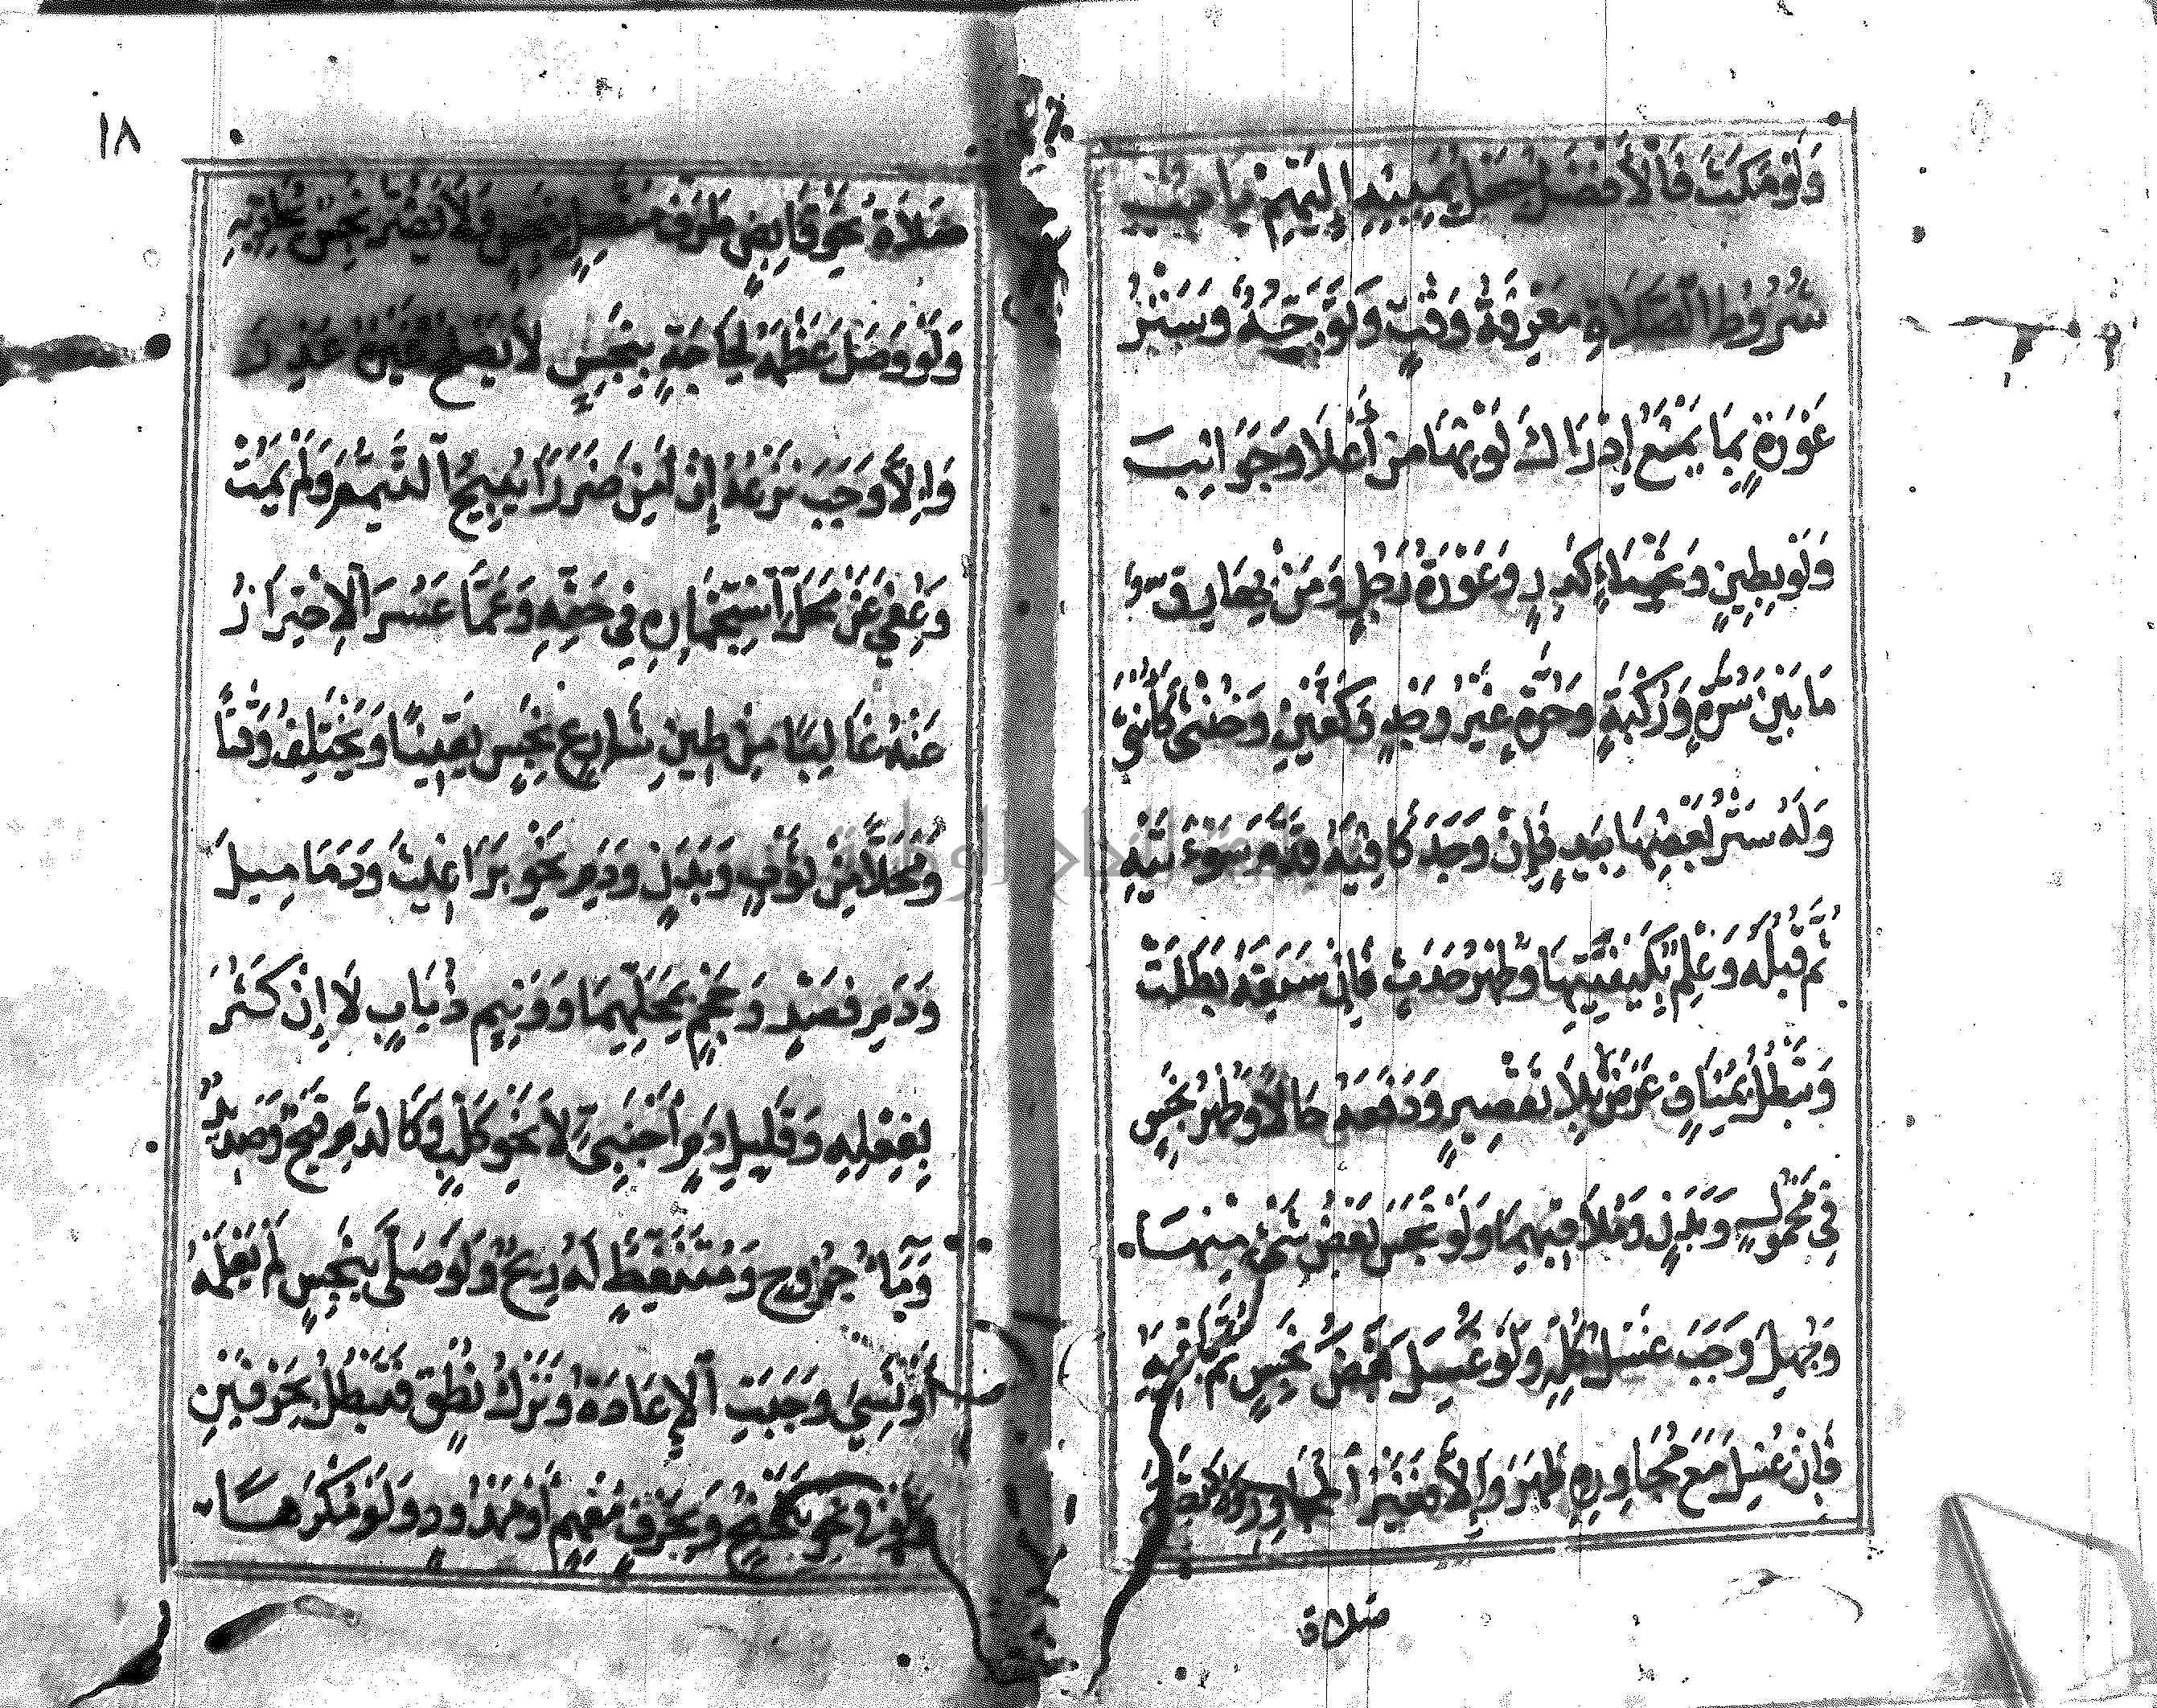 وَلَوْ مَكَثَ فَالْأَفْضَلُ
شُرُوطُ الصَّلَاةِ مَعْرِفَةُ وَقْتٍ وَتَوَجُّهٌ وَسَتْرُ
عَوْرَةٍ بِمَا يَمْنَعُ إِدْرَاكَ لَوْنِهَا مِنْ أَعْلَا وَجَوَانِبَ
وَلَوْ بِطِينٍ وَنَحْوِ مَاءٍ كَدِرٍ وَعَوْرَةُ رَجُلٍ وَمَنْ بِهَا رِقٌّ
مَا بَيْنَ سُرَّةٍ وَرُكْبَةٍ وَحُرَّةٍ غَيْرُ وَجْهٍ وَكَفَّيْنِ وَخُنْثَى كَأُنْثَى
وَلَهُ سَتْرُ بَعْضِهَا بِيَدٍ فَإِنْ وَجَدَ كَافِيَهُ قُدِّمَ سَوْءَتَيْهِ
ثُمَّ قُبُلَهُ وَعِلْمٌ بِكَيْفِيَّتِهَا وَطُهْرُ حَدَثٍ فَإِنْ سَبَقَهُ بَطَلَتْ
وَتَبْطُلُ بِمُنَافٍ عَرَضَ لَا بِلَا تَقْصِيرٍ وَدَفَعَهُ حَالًا وَطُهْرُ نَجَسٍ
فِي مَحْمُولٍ وَبَدَنٍ وَمُلَاقِيهِمَا وَلَوْ نَجَسَ بَعْضُ شَيْءٍ مِنْهَا
وَجُهِلَ وَجَبَ غَسْلُ كُلِّهِ وَلَوْ غُسِلَ بَعْضُ نَجَسٍ ثُمَّ بَاقِيهِ
فَإِنْ غُسِلَ مَعَ مُجَاوِرِهِ طَهُرَ وَإِلَّا فَغَيْرُ الْمُجَاوِرِ وَلَا تَصِحُّ
صلاة
١٨
صَلَاةُ نَحْوِ قَابِضِ طَرَفِ مُتَّصِلٍ بِنَجَسٍ وَلَا يَضُرُّ نَجِسٌ يُحَاذِيهِ
وَلَوْ وَصَلَ عَظْمَهُ لِحَاجَةٍ بِنَجَسٍ لَا يَصْلُحُ غَيْرُهُ عُذِرَ
وَإِلَّا وَجَبَ نَزْعُهُ إِنْ أَمِنَ ضَرَرًا يُبِيحُ التَّيَمُّمَ وَلَمْ يَمُتْ
وَعُفِيَ عَنْ مَحَلِّ اسْتِجْمَارِهِ فِي حَقِّهِ وَعَمَّا عَسُرَ الِاحْتِرَازُ
عَنْهُ غَالِبًا مِنْ طِينِ شَارِعٍ نَجِسٍ يَقِينًا وَيَخْتَلِفُ وَقْتًا
وَمَحَلًّا مِنْ ثَوْبٍ وَبَدَنٍ وَدَمِ نَحْوِ بَرَاغِيثَ وَدَمَامِيلَ
وَدَمِ فَصْدٍ وَحَجْمٍ بِمَحَلِّهِمَا وَوَنِيمِ ذُبَابٍ لَا إِنْ كَثُرَ
بِفِعْلِهِ وَقَلِيلِ دَمِ أَجْنَبِيٍّ لَا نَحْوِ كَلْبٍ وَكَالدَّمِ قَيْحٌ وَصَدِيدٌ
وَمَاءُ جُرُوحٍ وَمُتَنَفِّطٍ لَهُ رِيحٌ وَلَوْ صَلَّى بِنَجَسٍ لَمْ يَعْلَمْهُ
أَوْ نَسِيَ وَجَبَتِ الْإِعَادَةُ وَتَرْكُ نُطْقٍ فَتَبْطُلُ بِحَرْفَيْنِ
وَلَوْ فِي نَحْوِ تَنَحْنُحٍ وَبِحَرْفٍ مُفْهِمٍ أَوْ مَمْدُودٍ وَلَوْ مُكْرَهًا